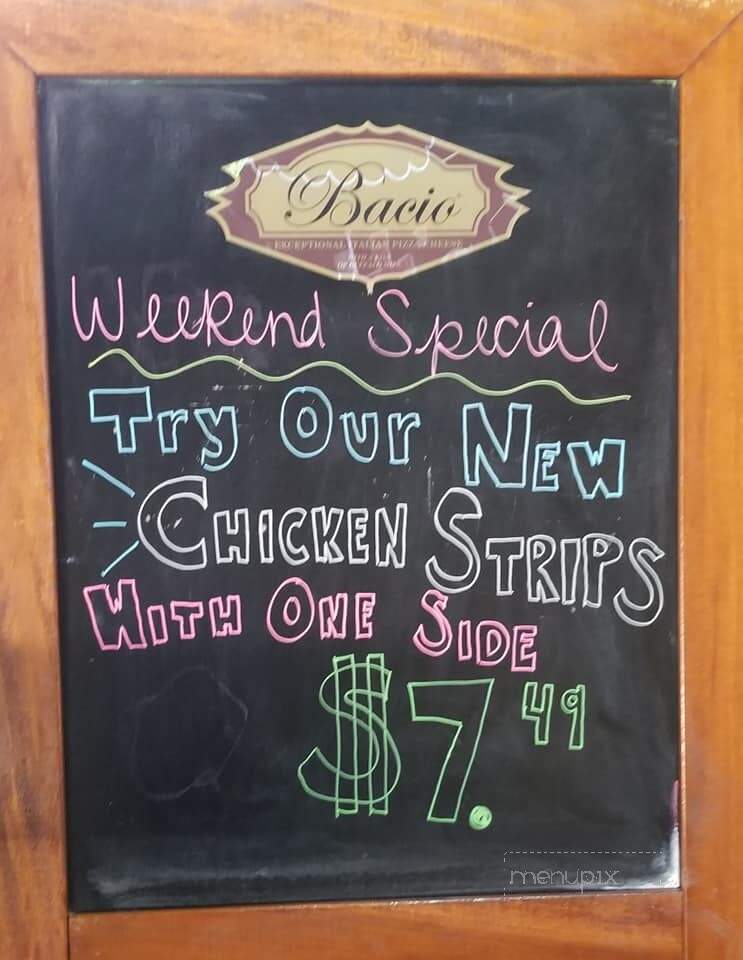 Bacio
EXCEPTIONAL ITALIAN PIZZA CHEESE
Weekend Special
Try Our New
Chicken Strips
With One Side
$7.49
menupix